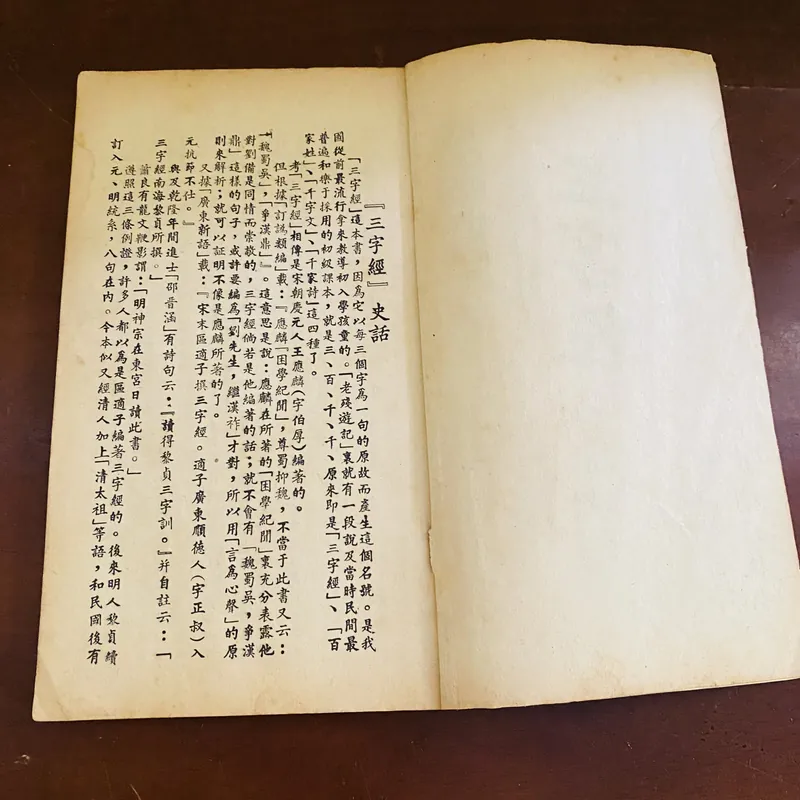 『三字經』史話
「三字經」這本書，因為它以每三個字為一句的原故而產生這個名號。是我
國從前最流行拿來教導初入學孩童的。「老殘遊記」裏就有一段說及當時民間最
普遍和樂于採用的初級課本，就是三、百、千、千、原來即是「三字經」、「百
家姓」、「千字文」、「千家詩」這四種了。
考「三字經」相傳是宋朝慶元人王應麟（字伯厚）編著的。
但根據「訂譌類編」載：『應麟「困學紀聞」，尊蜀抑魏，不當于此書又云：
「魏蜀吳」，「爭漢鼎」』。這意思是說：應麟在所著的「困學紀聞」裏充分表露他
對劉備是同情而崇敬的，三字經倘若是他編著的話；就不會有「魏蜀吳，爭漢
鼎」這樣的句子，或許要編為「劉先生，繼漢祚」才對，所以用「言為心聲」的原
則來解析；就可以証明不像是應麟所著的了。
又據「廣東新語」載：『宋末區適子撰三字經。適子廣東順德人（字正叔）入
元抗節不仕。』
與及乾隆年間進士「邵晉涵」有詩句云：『讀得黎貞三字訓。』并自註云：「
三字經南海黎貞所撰。」
蕭良有龍文鞭影謂：「明神宗在東宮日讀此書。」
遵照這三條例證，許多人都以為是區適子編著三字經的。後來明人黎貞續
訂入元、明統系，八句在內。今本似又經清人加上「清太祖」等語，和民國後有